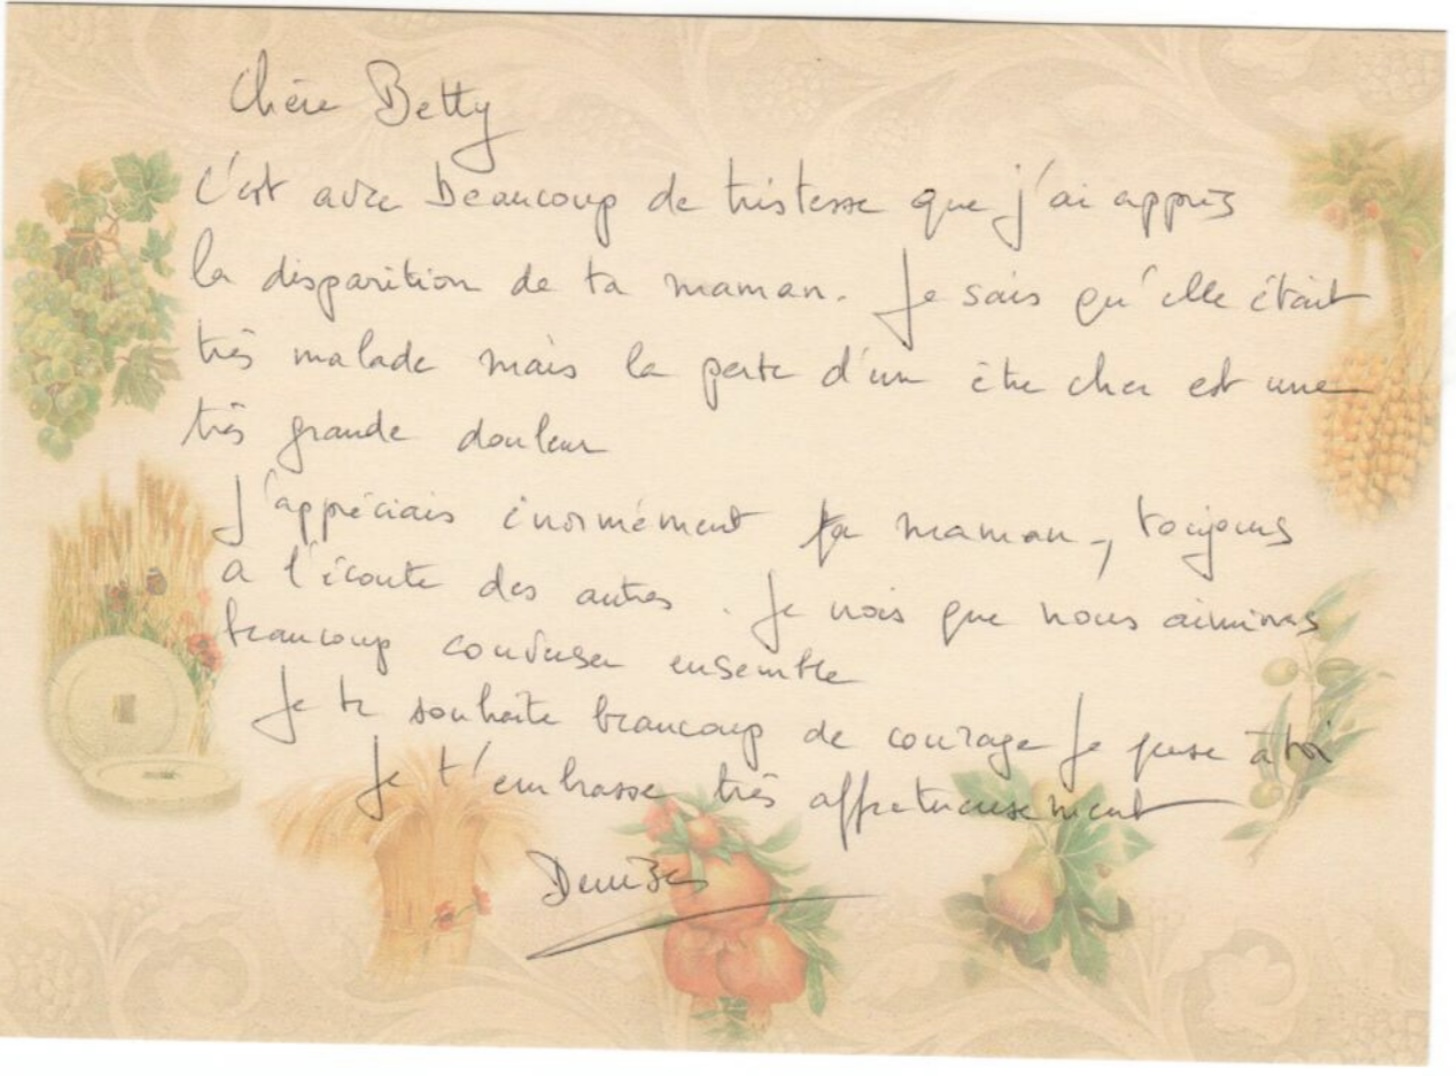 Chère Betty
C'est avec beaucoup de tristesse que j'ai appris
la disparition de ta maman. Je sais qu'elle était
très malade mais la perte d'un être cher est une
très grande douleur
J'appréciais énormément ta maman, toujours
a l'écoute des autres. Je crois que nous aimions
beaucoup converser ensemble
Je te souhaite beaucoup de courage Je pense à toi
Je t'embrasse très affectueusement